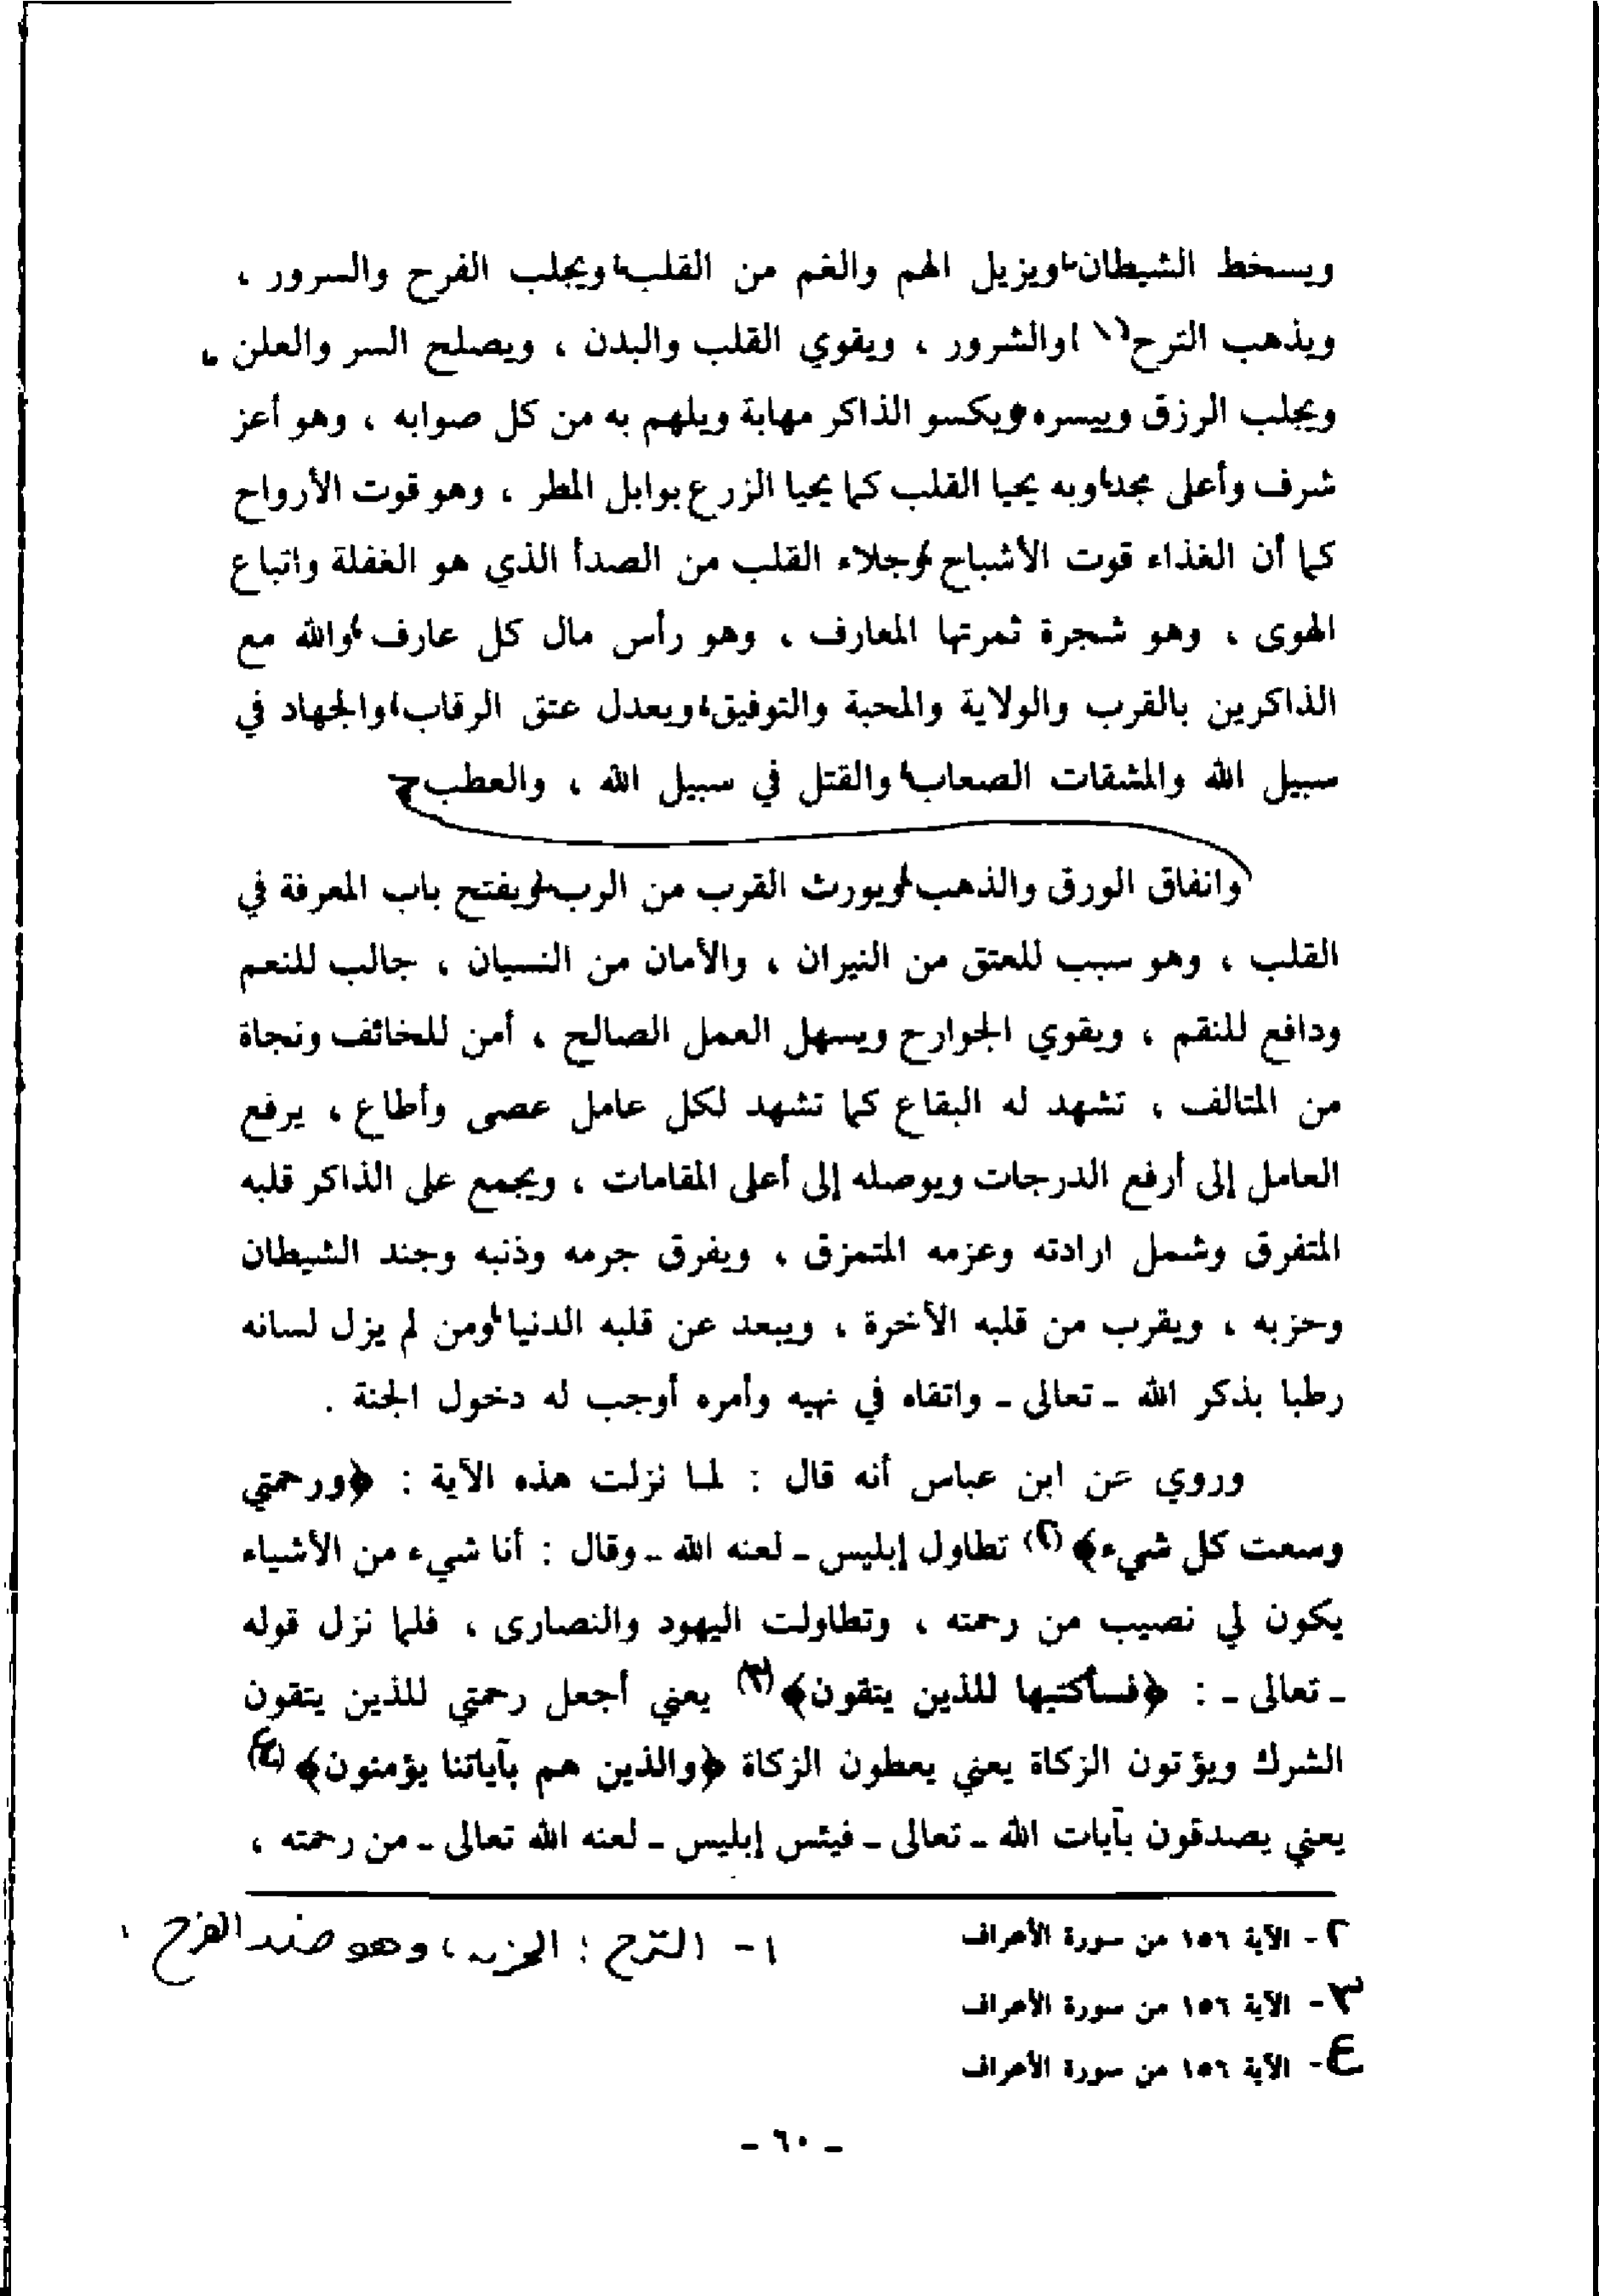 ويسخط الشيطان، ويزيل الهم والغم من القلب، ويجلب الفرح والسرور ،
ويذهب الترح(١) والشرور ، ويقوي القلب والبدن ، ويصلح السر والعلن ،
ويجلب الرزق وييسره، ويكسو الذاكر مهابة ويلهم به من كل صوابه ، وهو أعز
شرف وأعلى مجد، وبه يحيا القلب كما يحيا الزرع بوابل المطر ، وهو قوت الأرواح
كما أن الغذاء قوت الأشباح، وجلاء القلب من الصدأ الذي هو الغفلة واتباع
الهوى ، وهو شجرة ثمرتها المعارف ، وهو رأس مال كل عارف، والله مع
الذاكرين بالقرب والولاية والمحبة والتوفيق، ويعدل عتق الرقاب، والجهاد في
سبيل الله والمشقات الصعاب، والقتل في سبيل الله ، والعطب
وانفاق الورق والذهب، ويورث القرب من الرب، ويفتح باب المعرفة في
القلب ، وهو سبب للعتق من النيران ، والأمان من النسيان ، جالب للنعم
ودافع للنقم ، ويقوي الجوارح ويسهل العمل الصالح ، أمن للخائف ونجاة
من المتالف ، تشهد له البقاع كما تشهد لكل عامل عصى وأطاع ، يرفع
العامل إلى أرفع الدرجات ويوصله إلى أعلى المقامات ، ويجمع على الذاكر قلبه
المتفرق وشمل ارادته وعزمه المتمزق ، ويفرق جرمه وذنبه وجند الشيطان
وحزبه ، ويقرب من قلبه الأخرة ، ويبعد عن قلبه الدنيا، ومن لم يزل لسانه
رطبا بذكر الله - تعالى - واتقاه في نهيه وأمره أوجب له دخول الجنة .
وروي عن ابن عباس أنه قال : لما نزلت هذه الآية : ﴿ورحمتي
وسعت كل شيء﴾(٢) تطاول إبليس - لعنه الله - وقال : أنا شيء من الأشياء
يكون لي نصيب من رحمته ، وتطاولت اليهود والنصارى ، فلما نزل قوله
- تعالى - : ﴿فسأكتبها للذين يتقون﴾(٣) يعني أجعل رحمتي للذين يتقون
الشرك ويؤتون الزكاة يعني يعطون الزكاة ﴿والذين هم بآياتنا يؤمنون﴾(٤)
يعني يصدقون بآيات الله - تعالى - فيئس إبليس - لعنه الله تعالى - من رحمته ،
١- الترح : الحزن ، وهو ضد الفرح .
٢- الآية ١٥٦ من سورة الأعراف
٣- الآية ١٥٦ من سورة الأعراف
٤- الآية ١٥٦ من سورة الأعراف
- ٦٠ -